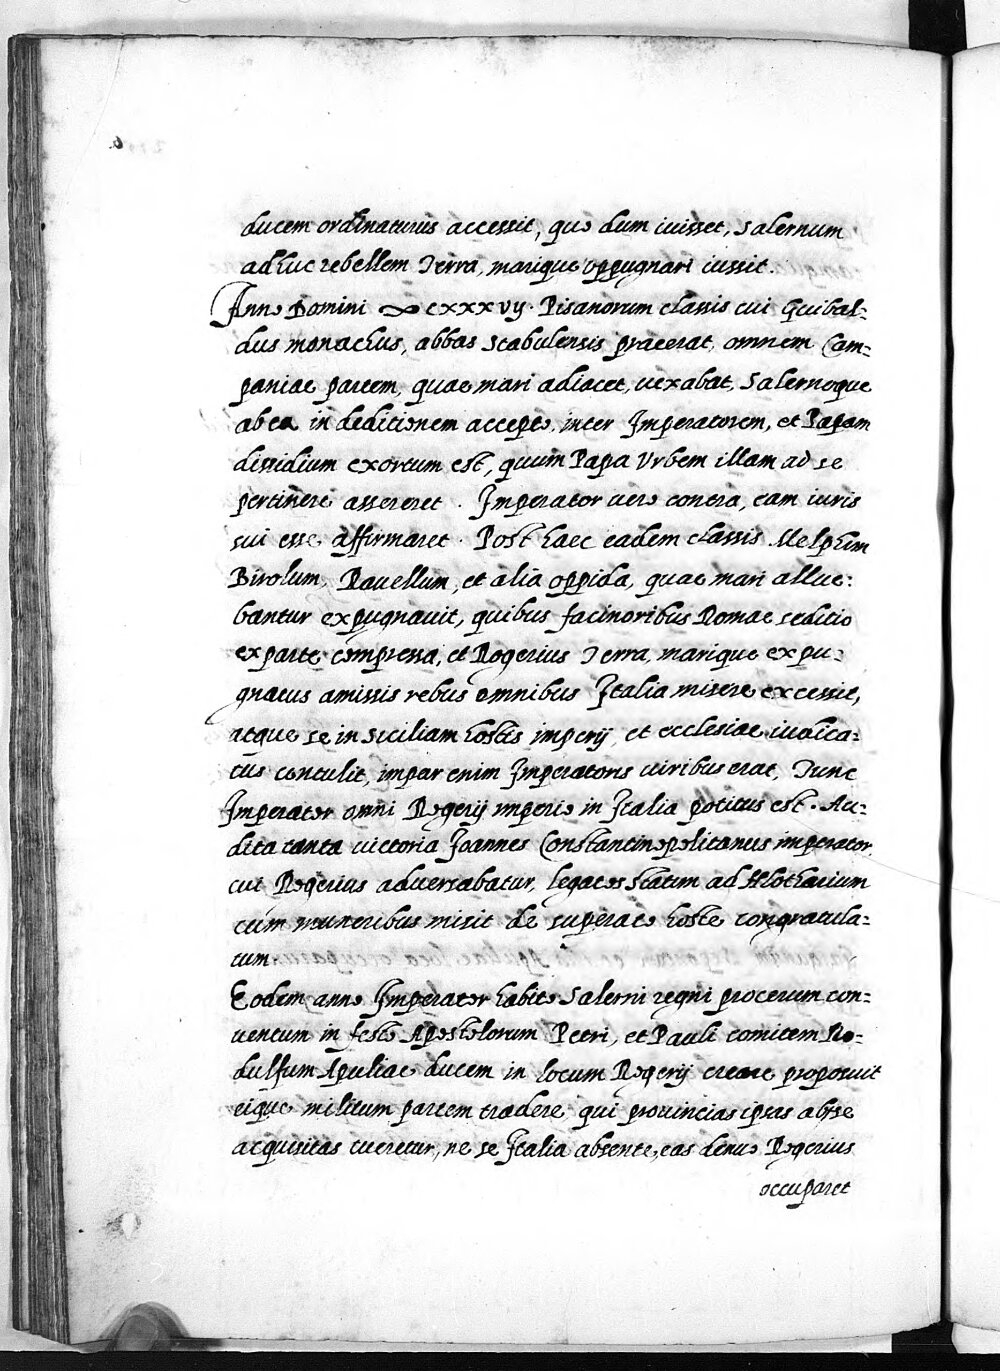 ducem ordinaturus accessit, quo dum iuisset, Salernum
adhuc rebellem Terra, marique oppugnari iussit.
Anno Domini ∞ cxxxvij. Pisanorum classis cui Guibal=
dus monachus, abbas Stabulensis praeerat, omnem Cam=
paniae partem, quae mari adiacet, vexabat, Salernoque
ab ea in deditionem accepto, inter Imperatorem, et Papam
dissidium exortum est, quum Papa Vrbem illam ad se
pertinere assereret. Imperator vero contra, eam iuris
sui esse affirmaret. Post haec eadem classis Melphim
Birolum, Rauellum, et alia oppida, quae mari allue=
bantur expugnauit, quibus facinoribus Romae seditio
ex parte compressa, et Rogerius Terra, marique expu=
gnatus amissis rebus omnibus Italia misere excessit,
atque se in Siciliam hostis imperij, et ecclesiae iudica=
tus contulit, impar enim Imperatoris viribus erat, Tunc
Imperator omni Rogerij imperio in Italia potitus est. Au=
dita tanta victoria Joannes Constantinopolitanus imperator,
cui Rogerius aduersabatur, legatos statim ad Hlotharium
cum muneribus misit de superato hoste congratula=
tum
Eodem anno Imperator habito Salerni regni procerum con=
uentum in festo Apostolorum Petri, et Pauli comitem Ro=
dulfum Apuliae ducem in locum Rogerij creare proposuit
eique militum partem tradere, qui prouincias ipsas ab se
acquisitas tueretur, ne se Italia absente, eas denuo Rogerius
occuparet